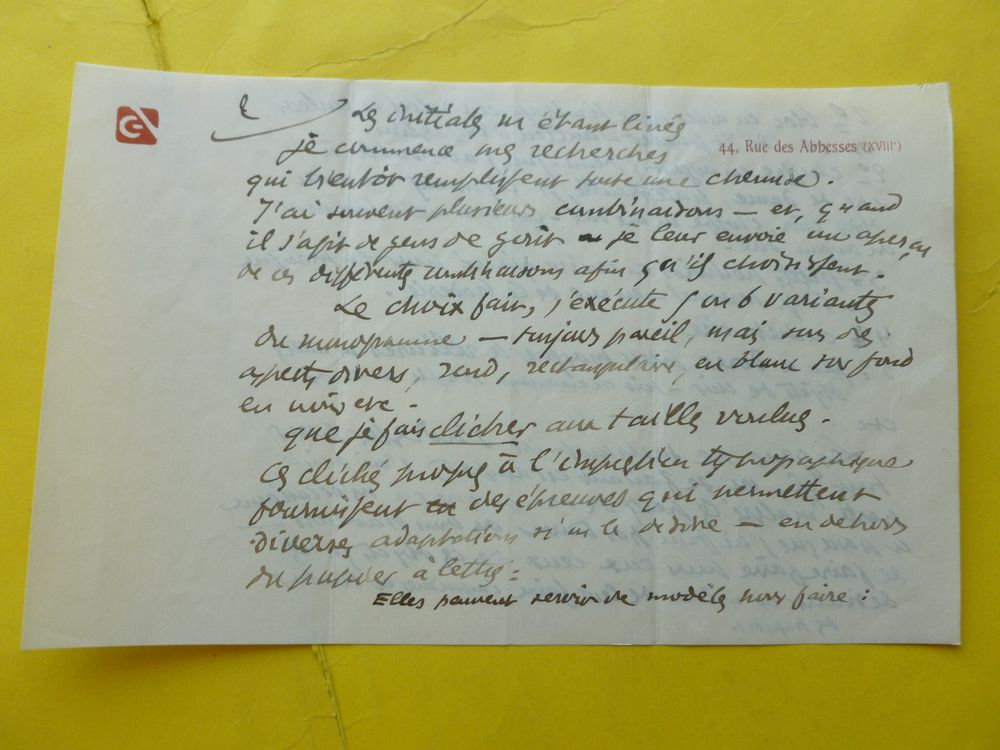 44, Rue des Abbesses (XVIIIe)
Les initiales m'étant livrés
je commence mes recherches
qui bientôt remplissent toute une chemise.
J'ai souvent plusieurs combinaisons — et, quand
il s'agit de gens de goût je leur envoie un aperçu
de ces différentes combinaisons afin qu'ils choisissent.
Le choix fait, j'exécute 5 ou 6 variantes
du monogramme — toujours pareil, mais sous des
aspects divers, rond, rectangulaire, en blanc sur fond
en noir etc.
que je fais clicher aux tailles voulues.
Ces clichés propres à l'impression typographique
fournissent des épreuves qui permettent
diverses adaptations si on le désire — en dehors
du papier à lettres :
Elles peuvent servir de modèles pour faire :